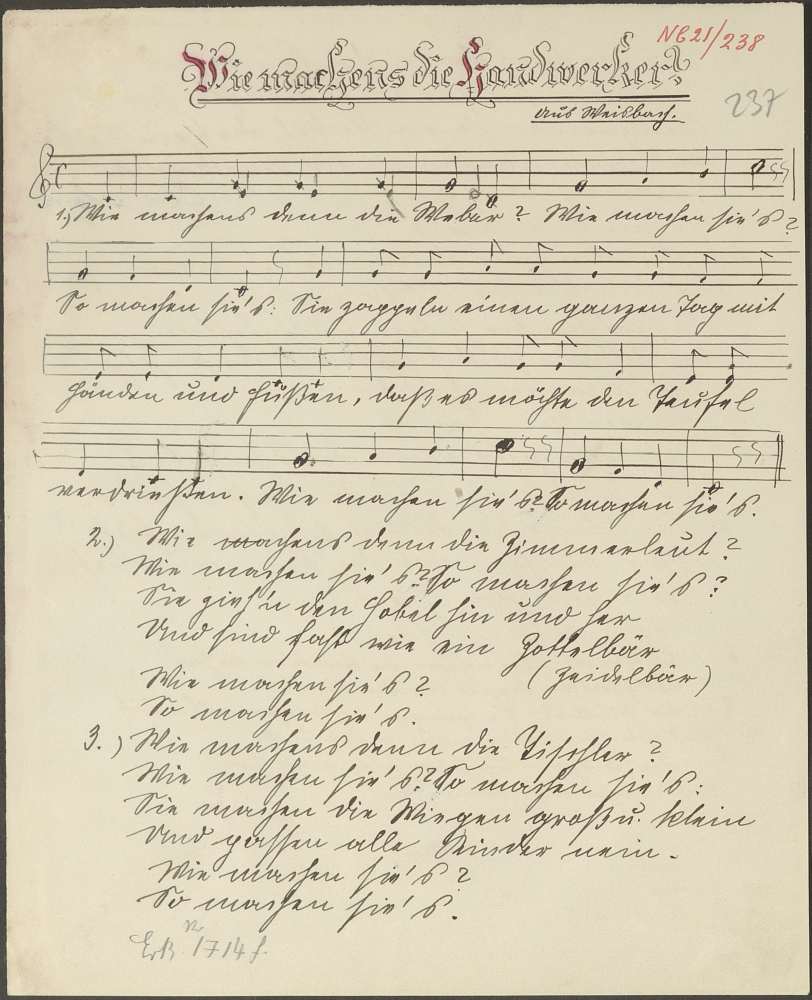 NB21/238
Wie machens die Handwerker?
aus Weisbach.
237
1.) Wie machens denn die Weber? Wie machen sie's?
So machen sie's: Sie zappeln einen ganzen Tag mit
Händen und Füßen, daß es möchte den Teufel
verdrießen. Wie machen sie's? So machen sie's.
2.) Wie machens denn die Zimmerleut?
Wie machen sie's? So machen sie's?
Sie zieh'n den Hobel hin und her
Und sind fast wie ein Zottelbär
(Zeidelbär)
Wie machen sie's?
So machen sie's.
3.) Wie machens denn die Tischler?
Wie machen sie's? So machen sie's:
Sie machen die Wiegen groß u. klein
Und passen alle Kinder nein.
Wie machen sie's?
So machen sie's.
Erk No 1714 f.